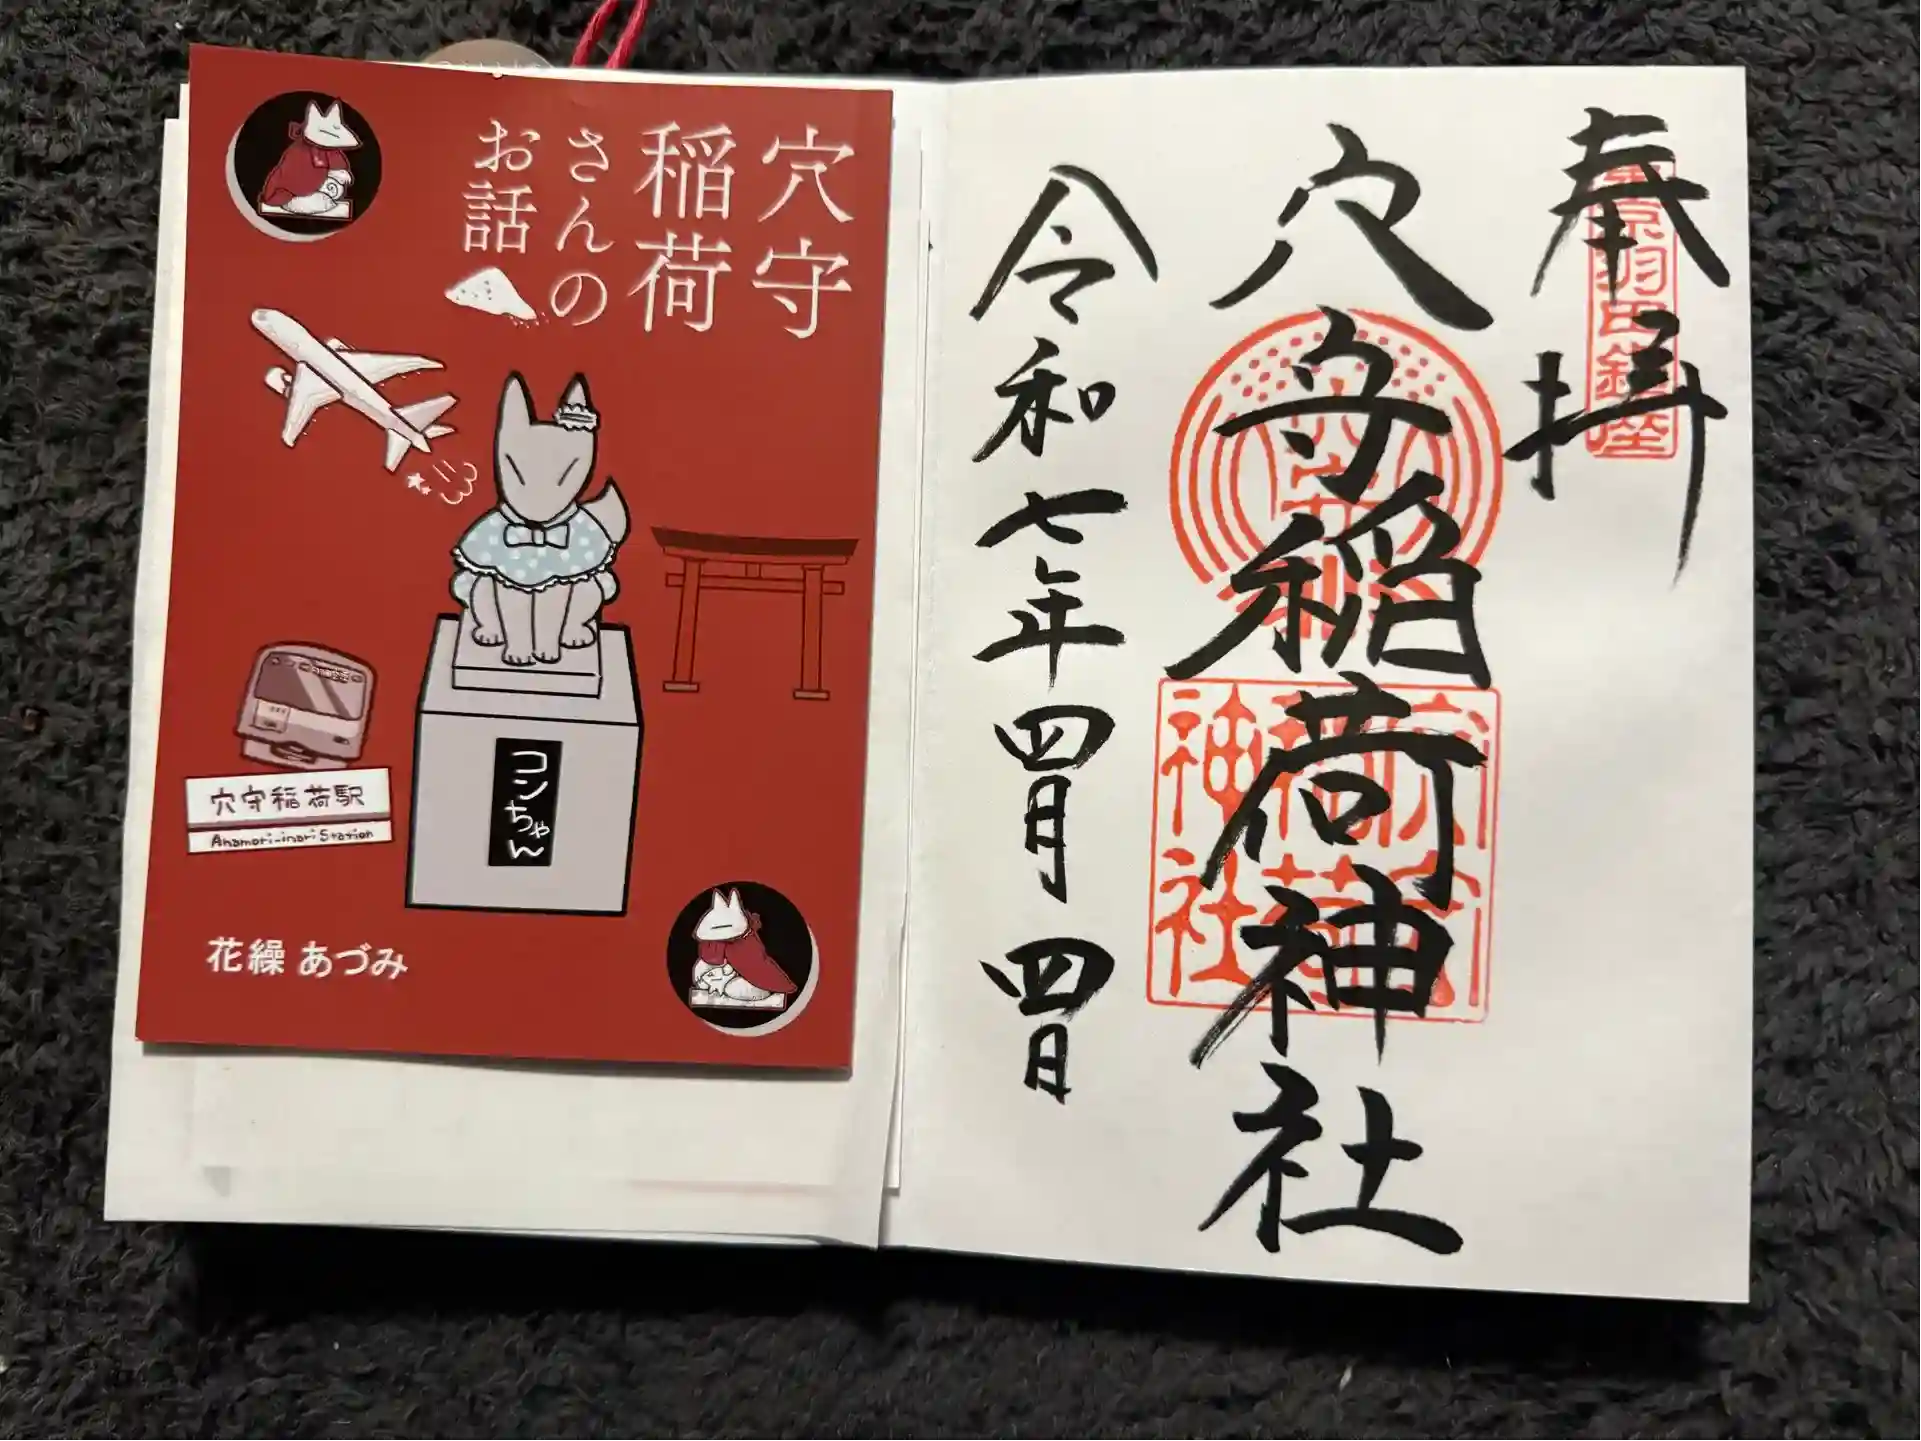 穴守
稲荷
さんの
お話
コンちゃん
穴守稲荷駅
Anamori-inari Station
花繰 あづみ
奉拝
東京羽田鎮座
穴守稲荷神社
穴守
稲荷
神社
令和七年四月四日